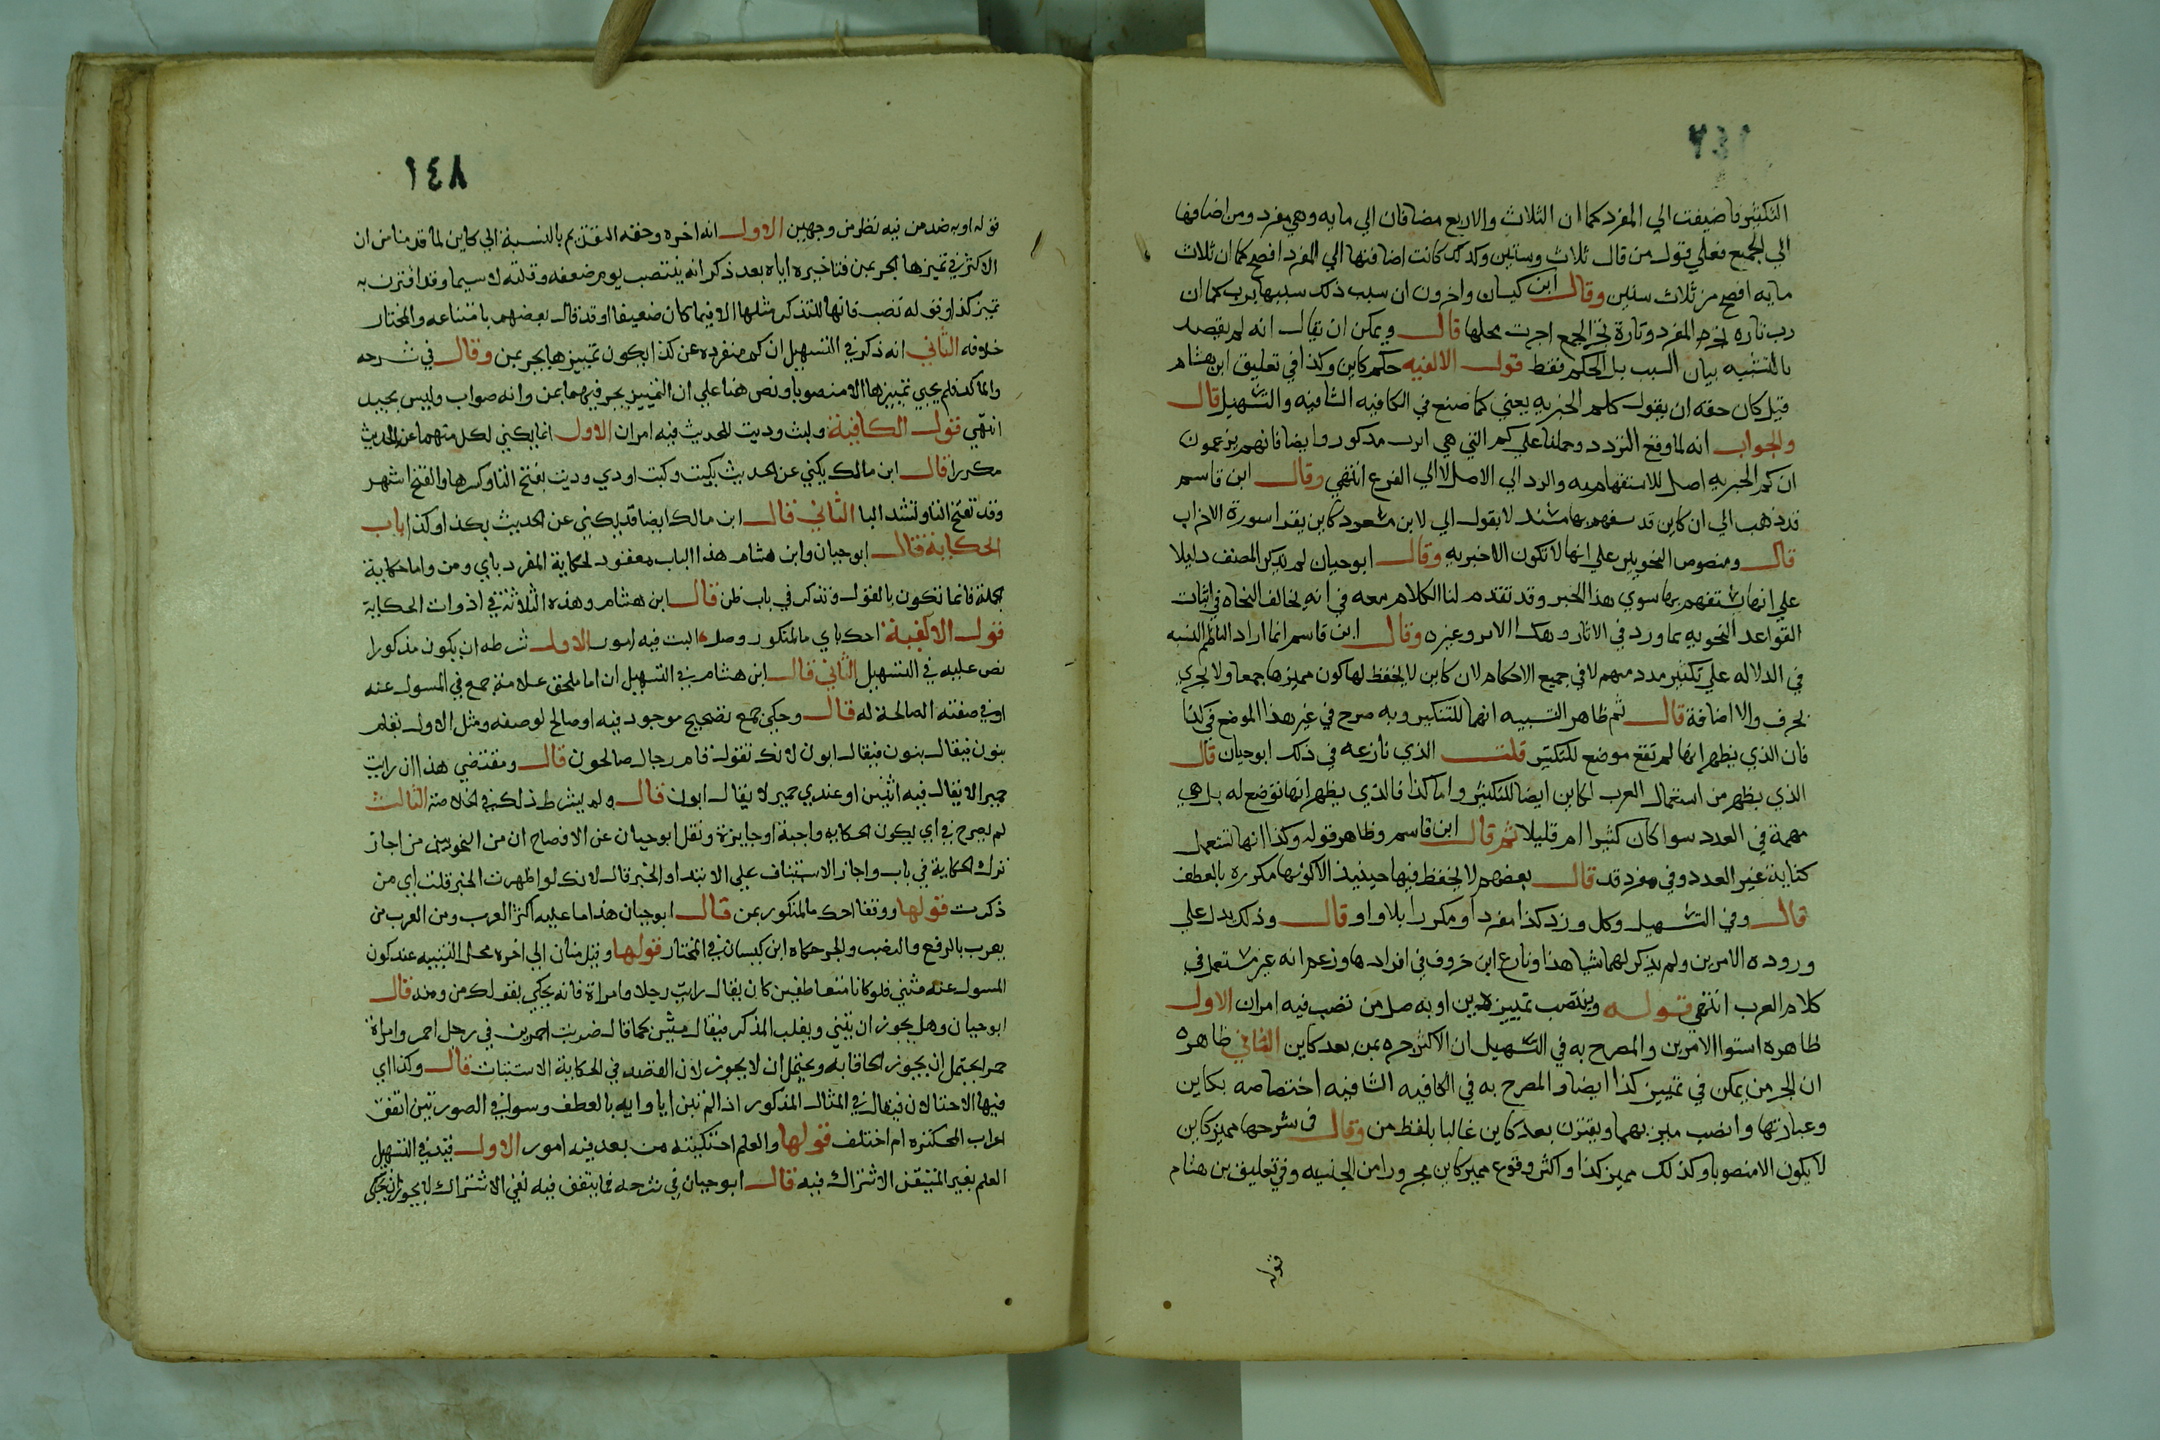 ١٤٧
التكثير فاضيفت الي المفرد كما ان الثلاث والاربع مضافان الي مايه وهي مفرد ومن اضافها
الي الجمع فعلي قول من قال ثلاث وستين وكذلك كانت اضافتها الي المفرد افصح كما ان ثلاث
مايه افصح من ثلاث سنين وقال ابن كيسان واخرون ان سبب ذلك سببها برب كما ان
رب تاره تجر المفرد وتارة تجر الجمع اجرت محلها قال ويمكن ان يقال انه لم يقصد
بالتشبيه بيان السبب بل الحكم فقط قول الالفيه حكم كاين وكذا في تعليق ابن هشام
قيل كان حقه ان يقول ككم الخبريه يعني كما صنع في الكافيه الشافيه والتسهيل قال
والجواب انه لما وقع التردد وحملنا علي كم التي هي اقرب مذكور وايضا فانهم يزعمون
ان كم الخبريه اصل للاستفهاميه والرد الي الاصل لا الي الفرع انتهي وقال ابن قاسم
قد ذهب الي ان كاين قد يستفهم بها مستند لا بقول ابي لابن مسعود كاين يقرا سورة الاحزاب
قال ونصوص النحويين علي انها لا تكون الا خبريه وقال ابوحيان لم يذكر المصنف دليلا
علي انها يستفهم بها سوي هذا الخبر وقد تقدم لنا الكلام معه في انه يخالف النحاه في اثبات
القواعد النحويه بما ورد في الاثار وهكذا الامر وغيره وقال ابن قاسم انما اراد الناظم الشبه
في الدلاله علي تكثير عدد مبهم لا في جميع الاحكام لان كاين لا يحفظ لها كون مميزها جمعا ولا يجري
بحرف والا اضافة قال ثم ظاهر التشبيه انهما للتكثير وبه صرح في غير هذا الموضع في كذا
فان الذي يظهر انها لم تقع موضع للتكثير قلت الذي نازعه في ذلك ابوحيان قال
الذي يظهر من استعمال العرب ان كاين ايضا للتكثير واما كذا فالذي يظهر انها توضع له بل هي
مبهمة في العدد سوا كان كثيرا ام قليلا ثم قال ابن قاسم وظاهر قوله وكذا انها تستعمل
كناية غير العدد وفي مفرد قد قال بعضهم لا يحفظ فيها حينيذ الا كونها مكرره بالعطف
قال وفي التسهيل وكل ورد كذا مفردا ومكررا بلا واو قال وذلك يدل علي
وروده الامرين ولم يذكر لهما شاهدا ونازع ابن خروف في افرادها وزعم انه غير مستعمل في
كلام العرب انتهي قوله وينتصب تمييز هذين او به صل من نصب فيه امران الاول
ظاهره استوا الامرين والمصرح به في التسهيل ان الاكثر جره بمن بعد كاين الثاني ظاهره
ان الجر من يمكن في تمييز كذا ايضا والمصرح به في الكافيه الشافيه اختصاصه بكاين
وعبارتها وانصب مبين بهما ويقترن بعد كاين غالبا بلفظ من وقال في شرحها مميز كاين
لا يكون الا منصوبا وكذلك مميز كذا واكثر وقوع مميز كاين مجرورا من الجنسيه وفي تعليق بن هشام
قوله
١٤٨
قوله او به ضد من فيه نظر من وجهين الاول انه اخره وحقه التقديم بالنسبة الي كاين لما قدمنا من ان
الاكثر في تميزها الجر بمن فتاخيره اياه بعد ذكر انه ينتصب يوهم ضعفه وقلته لاسيما وقد اقترن به
تميز كذا وقوله نصب فانها للتذكر مثلها الا فيما كان ضعيفا او قد قال بعضهم بامتناعه والمختار
خلافه الثاني انه ذكر في التسهيل ان كم منفرده عن كذا بكون تمييزها يجر بمن وقال في شرحه
واما كذا فلم يجي تمييزها الا منصوبا ونص هنا علي ان التمييز يجر فيهما بمن وانه صواب وليس بجيد
انتهي قول الكافية ولبث وديت للحديث فيه امران الاول انما يكني لكل منهما عن الحديث
مكررا قال ابن مالك يكني عن الحديث بكيت وكيت او ذي وديت بفتح التا وكسرها والفتح اشهر
وقد تفتح التا وتشد اليا الثاني قال ابن مالك ايضا قد يكني عن الحديث بكذا وكذا باب
الحكاية قال ابوحيان وابن هشام هذا الباب معقود لحكاية المفرد باي ومن واما حكاية
الجملة فانما تكون بالقول وتذكر في باب ظن قال ابن هشام وهذه الثلاثة في ادوات الحكاية
قول الالفية احك باي مالمنكور وصل البت فيه امور الاول شرطه ان يكون مذكورا
نص عليه في التسهيل الثاني قال ابن هشام في التسهيل ان اما ملحق علامة جمع في المسول عنه
او في صفته الصالحة له قال وحكي جمع تصحيح موجود فيه او صالح لوصفه ومثل الاول نعلم
بنون فيقال بنون فيقال ابون لانك تقول قام رجال صالحون قال ومقتضي هذا ان رايت
حميرا لا يقال فيه اثنين او عندي حمير لا يقال ابون قال ولم يشرط ذلك في الخلاصة الثالث
لم يصرح في اي يكون الحكايه واجبة او جايزة ونقل ابوحيان عن الافصاح ان من النحويين من اجاز
ترك الحكاية في باب واجاز الاستيناف علي الابتدا والخبر قال لانك لو اظهرت الخبر قلت اي من
ذكرت قولها ووقفا احك مالمنكور بمن قال ابوحيان هذا ما عليه اكثر العرب ومن العرب من
يعرب بالرفع والنصب والجر حكاه ابن كيسان في المختار قولها وقيل منان الي اخره محل التنبيه عند كون
المسول عنه مثني فلو كانا متعاطفين كان يقال رايت رجلا وامراة فانه يحكي بقولك من ومنه قال
ابوحيان وهل يجوز ان يثني ويغلب المذكر فيقال منين كما قال ضربت احمرين في رجل احمر وامراة
حمرا يحتمل ان يجوز الحاقا به ويحتمل ان لا يجوز لان القصد في الحكاية الاستثبات قال وكذا اي
فيها الاحتمالان فيقال في المثال المذكور اذا لم تبن ايا وايه بالعطف وسوا في الصورتين اتفق
اعراب المحكي ام اختلف قولها والعلم احكينه من بعد فيه امور الاول قيده في التسهيل
العلم بغير المتيقن الاشتراك فيه قال ابوحيان في شرحه فما يتقف فيه نفي الاشتراك لا يجوز ان يحكي